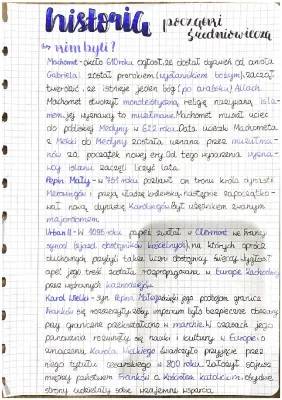 historia początki średniowiecza
kim byli?
Machomet - około 610 roku ogłosił, że dostał objawień od anioła
Gabriela i został prorokiem (wysłannikiem bożym), zaczął
twierdzić, że istnieje jeden Bóg (po arabsku) Allach.
Machomet stworzył monoteistyczną religię nazywaną isla-
mem, jej wyznawcy to muzułmanie. Machomet musiał uciec
do pobliskiej Medyny w 622 roku. Data ucieczki Machometa
z Mekki do Medyny została uznana przez muzułma-
nów za początek nowej ery. Od tego wydarzenia wyzna-
wcy islamu zaczęli liczyć lata.
Pepin Mały - w 751 roku pozbawił on tronu króla dynastii
Merowingów i przejął władzę królewską, następnie zapoczątko-
wał nową dynastię Karolingów. Był urzędnikiem zwanym
majordomem.
Urban II - W 1095 roku papież zwołał w Clermont we Francji
synod (zjazd dostojników kościelnych), na którym oprócz
duchownych przybyli także liczni dostojnicy świeccy. Wygłosił
apel, jego treść została rozpropagowana w Europie Zachodniej
przez wybranych kaznodziejów.
Karol Wielki - syn Pepina Małego, jego podbojom granice
Franków się rozszerzyły. Żeby imperium było bezpieczne obszary
przy granicy przekształcono w marchie. W czasach jego
panowania rozwinęły się nauki i kultury w Europie.
znaczenie Karola Wielkiego świadczyło przyjęcie przez
niego tytułu cesarskiego w 800 roku. Założył sojusz
między państwem Franków a Kościołem katolickim, obydwie
strony udzielały sobie wzajemne wsparcia.